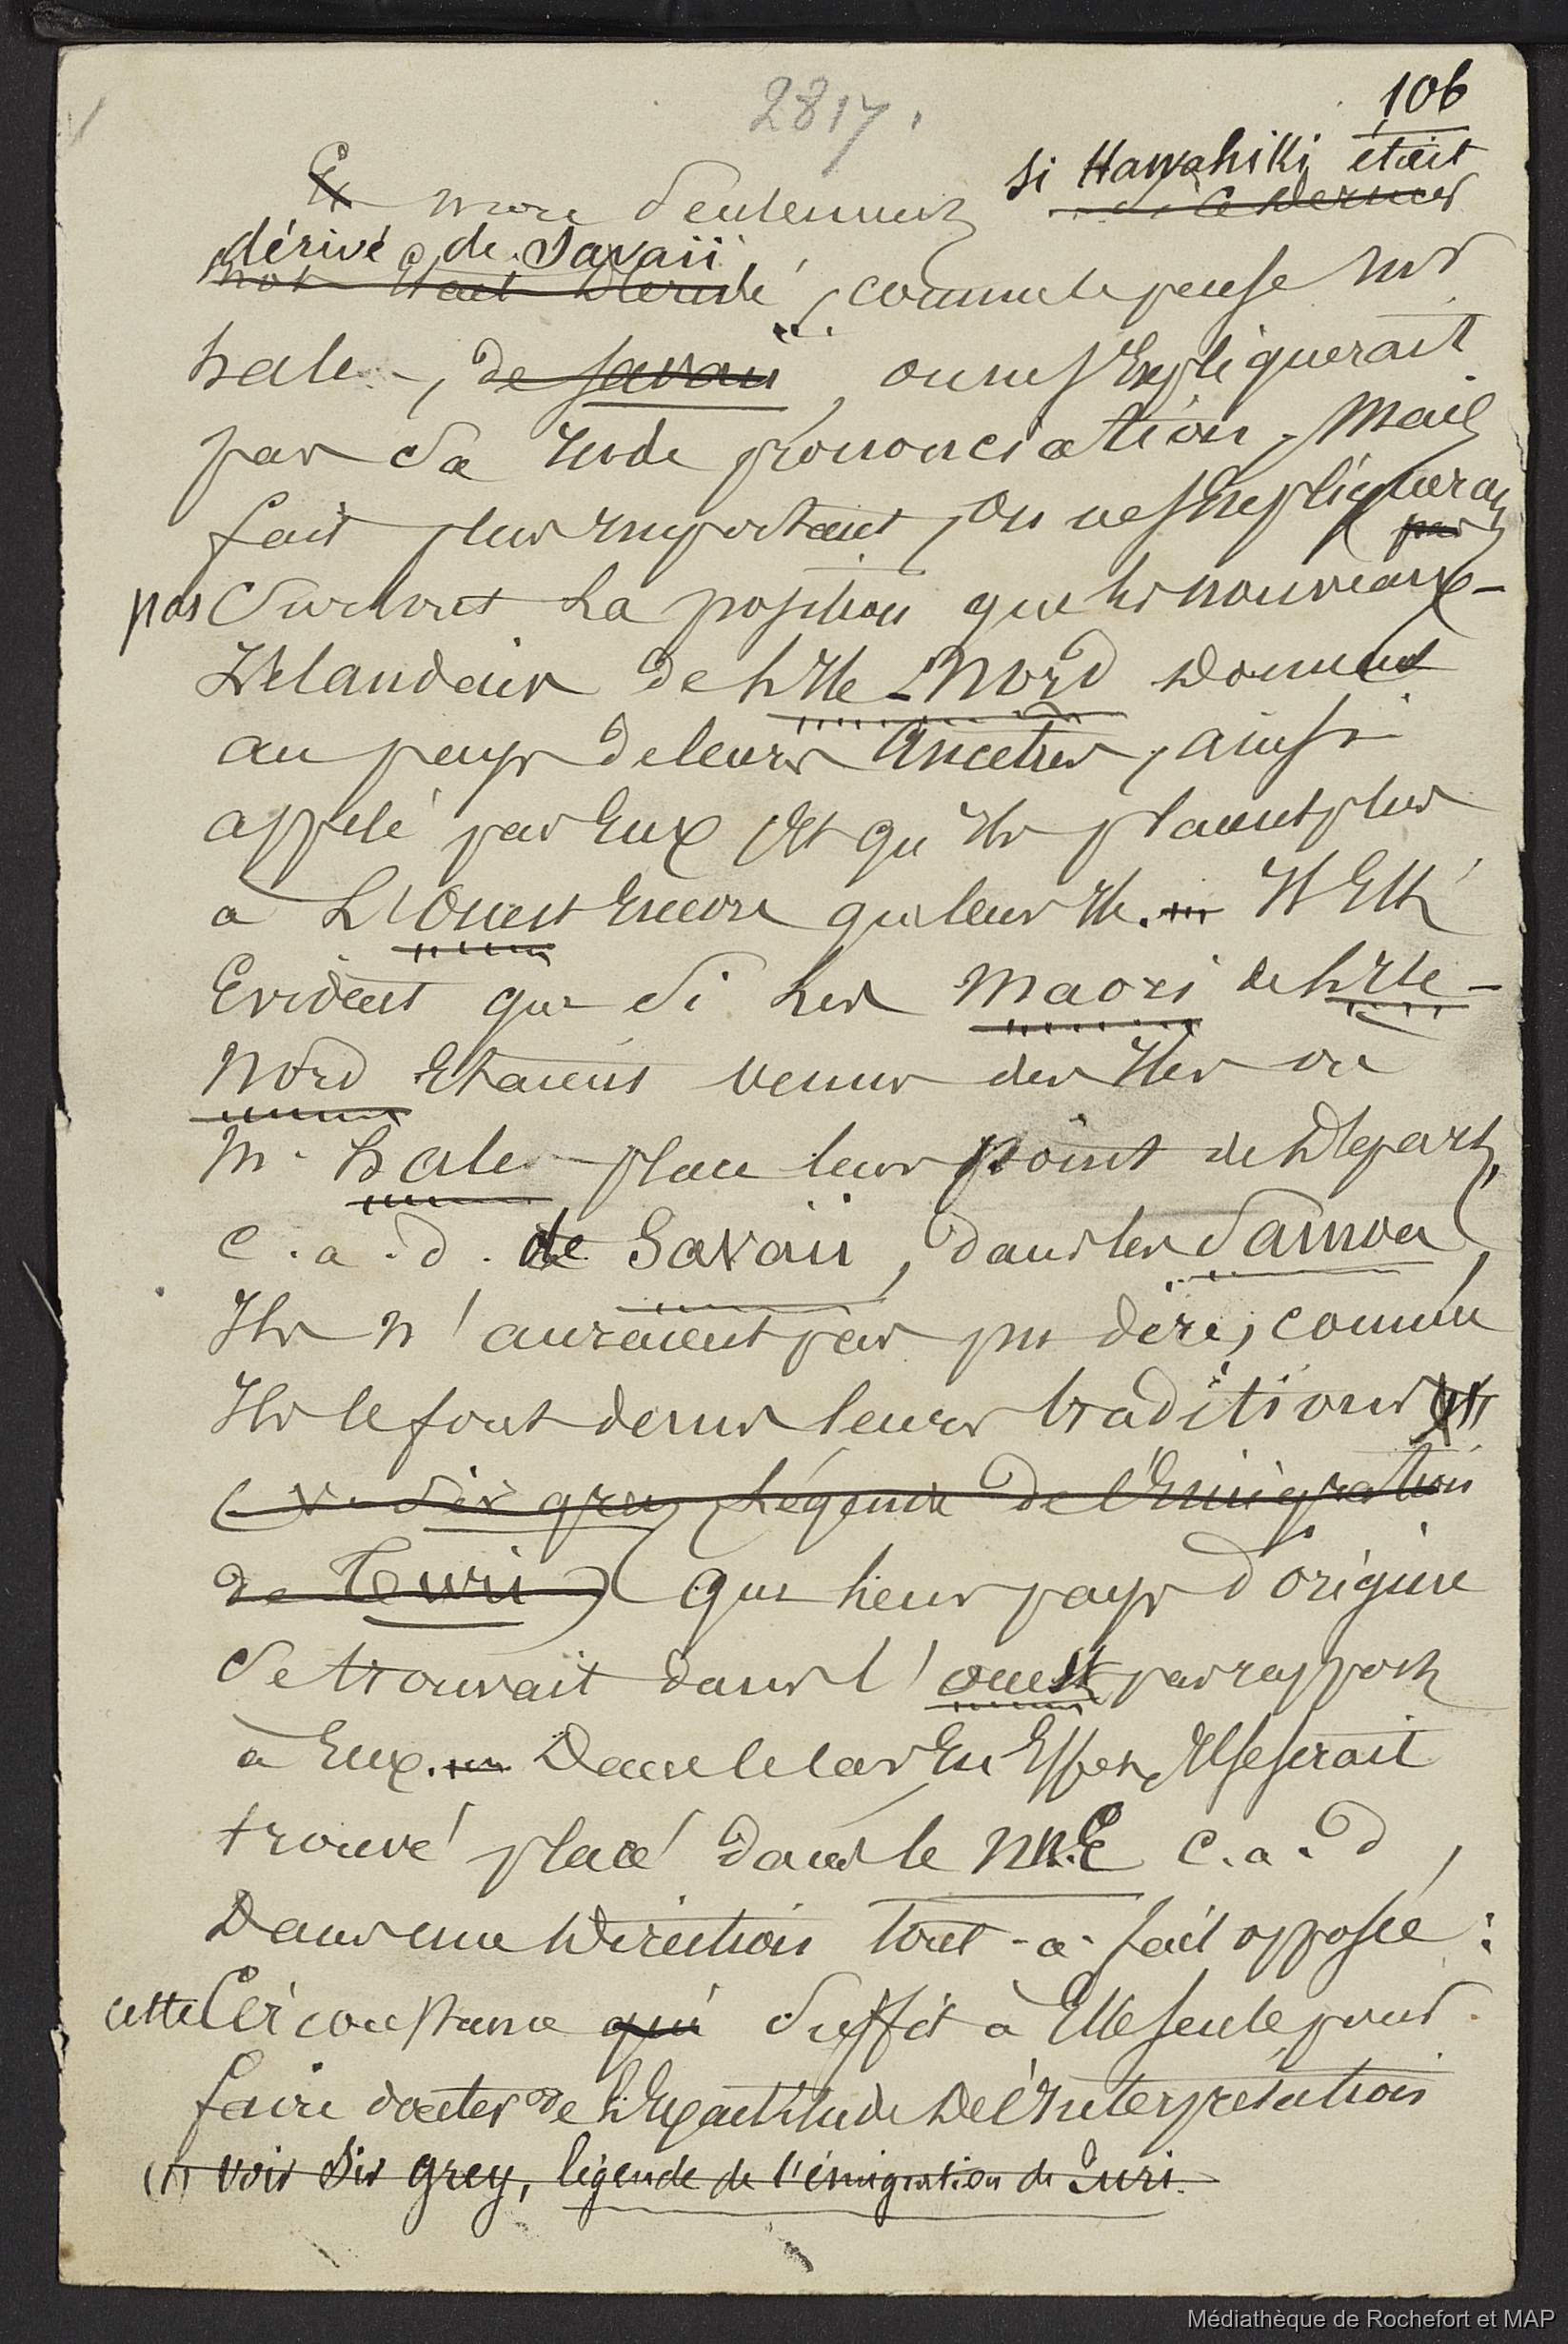 2817.
106
Et non seulement si Hawahiki était
si ce dernier
dérivé de Savaii
mot était dérivé, comme le pense mr
hale, de Savaii, on ne s'expliquerait
par sa rude prononciation, mais
fait plus important, on ne s'expliquerait
par
pas surtout la position que les nouveaux-
Zelandais de l'Ile-Nord donnent
au pays de leurs ancetres, ainsi
appelé par Eux et qu'ils placent plus
à L'Ouest Encore que leur Ile. Il Est
Evident que si les Maori de l'Ile-
Nord Etaient venus des Iles où
M. hale place leur point de Départ,
c.a.d. de Savaii, dans les Samoa,
Ils n'auraient pas pu dire, comme
Ils le font dans leurs traditions
(v. Sir grey Légende de l'Emigration
de Turi) que leur pays d'origine
se trouvait dans l'ouest par rapport
à Eux. Dans le cas En Effet, Il se serait
trouvé placé dans le N.N.E c.a.d,
Dans une Direction tout-a-fait opposée:
cette Circonstance qui suffit à Elle seule pour
faire douter de l'Exactitude de l'Interprétation
(1) voir Sir Grey, légende de l'émigration de Turi.
Médiathèque de Rochefort et MAP